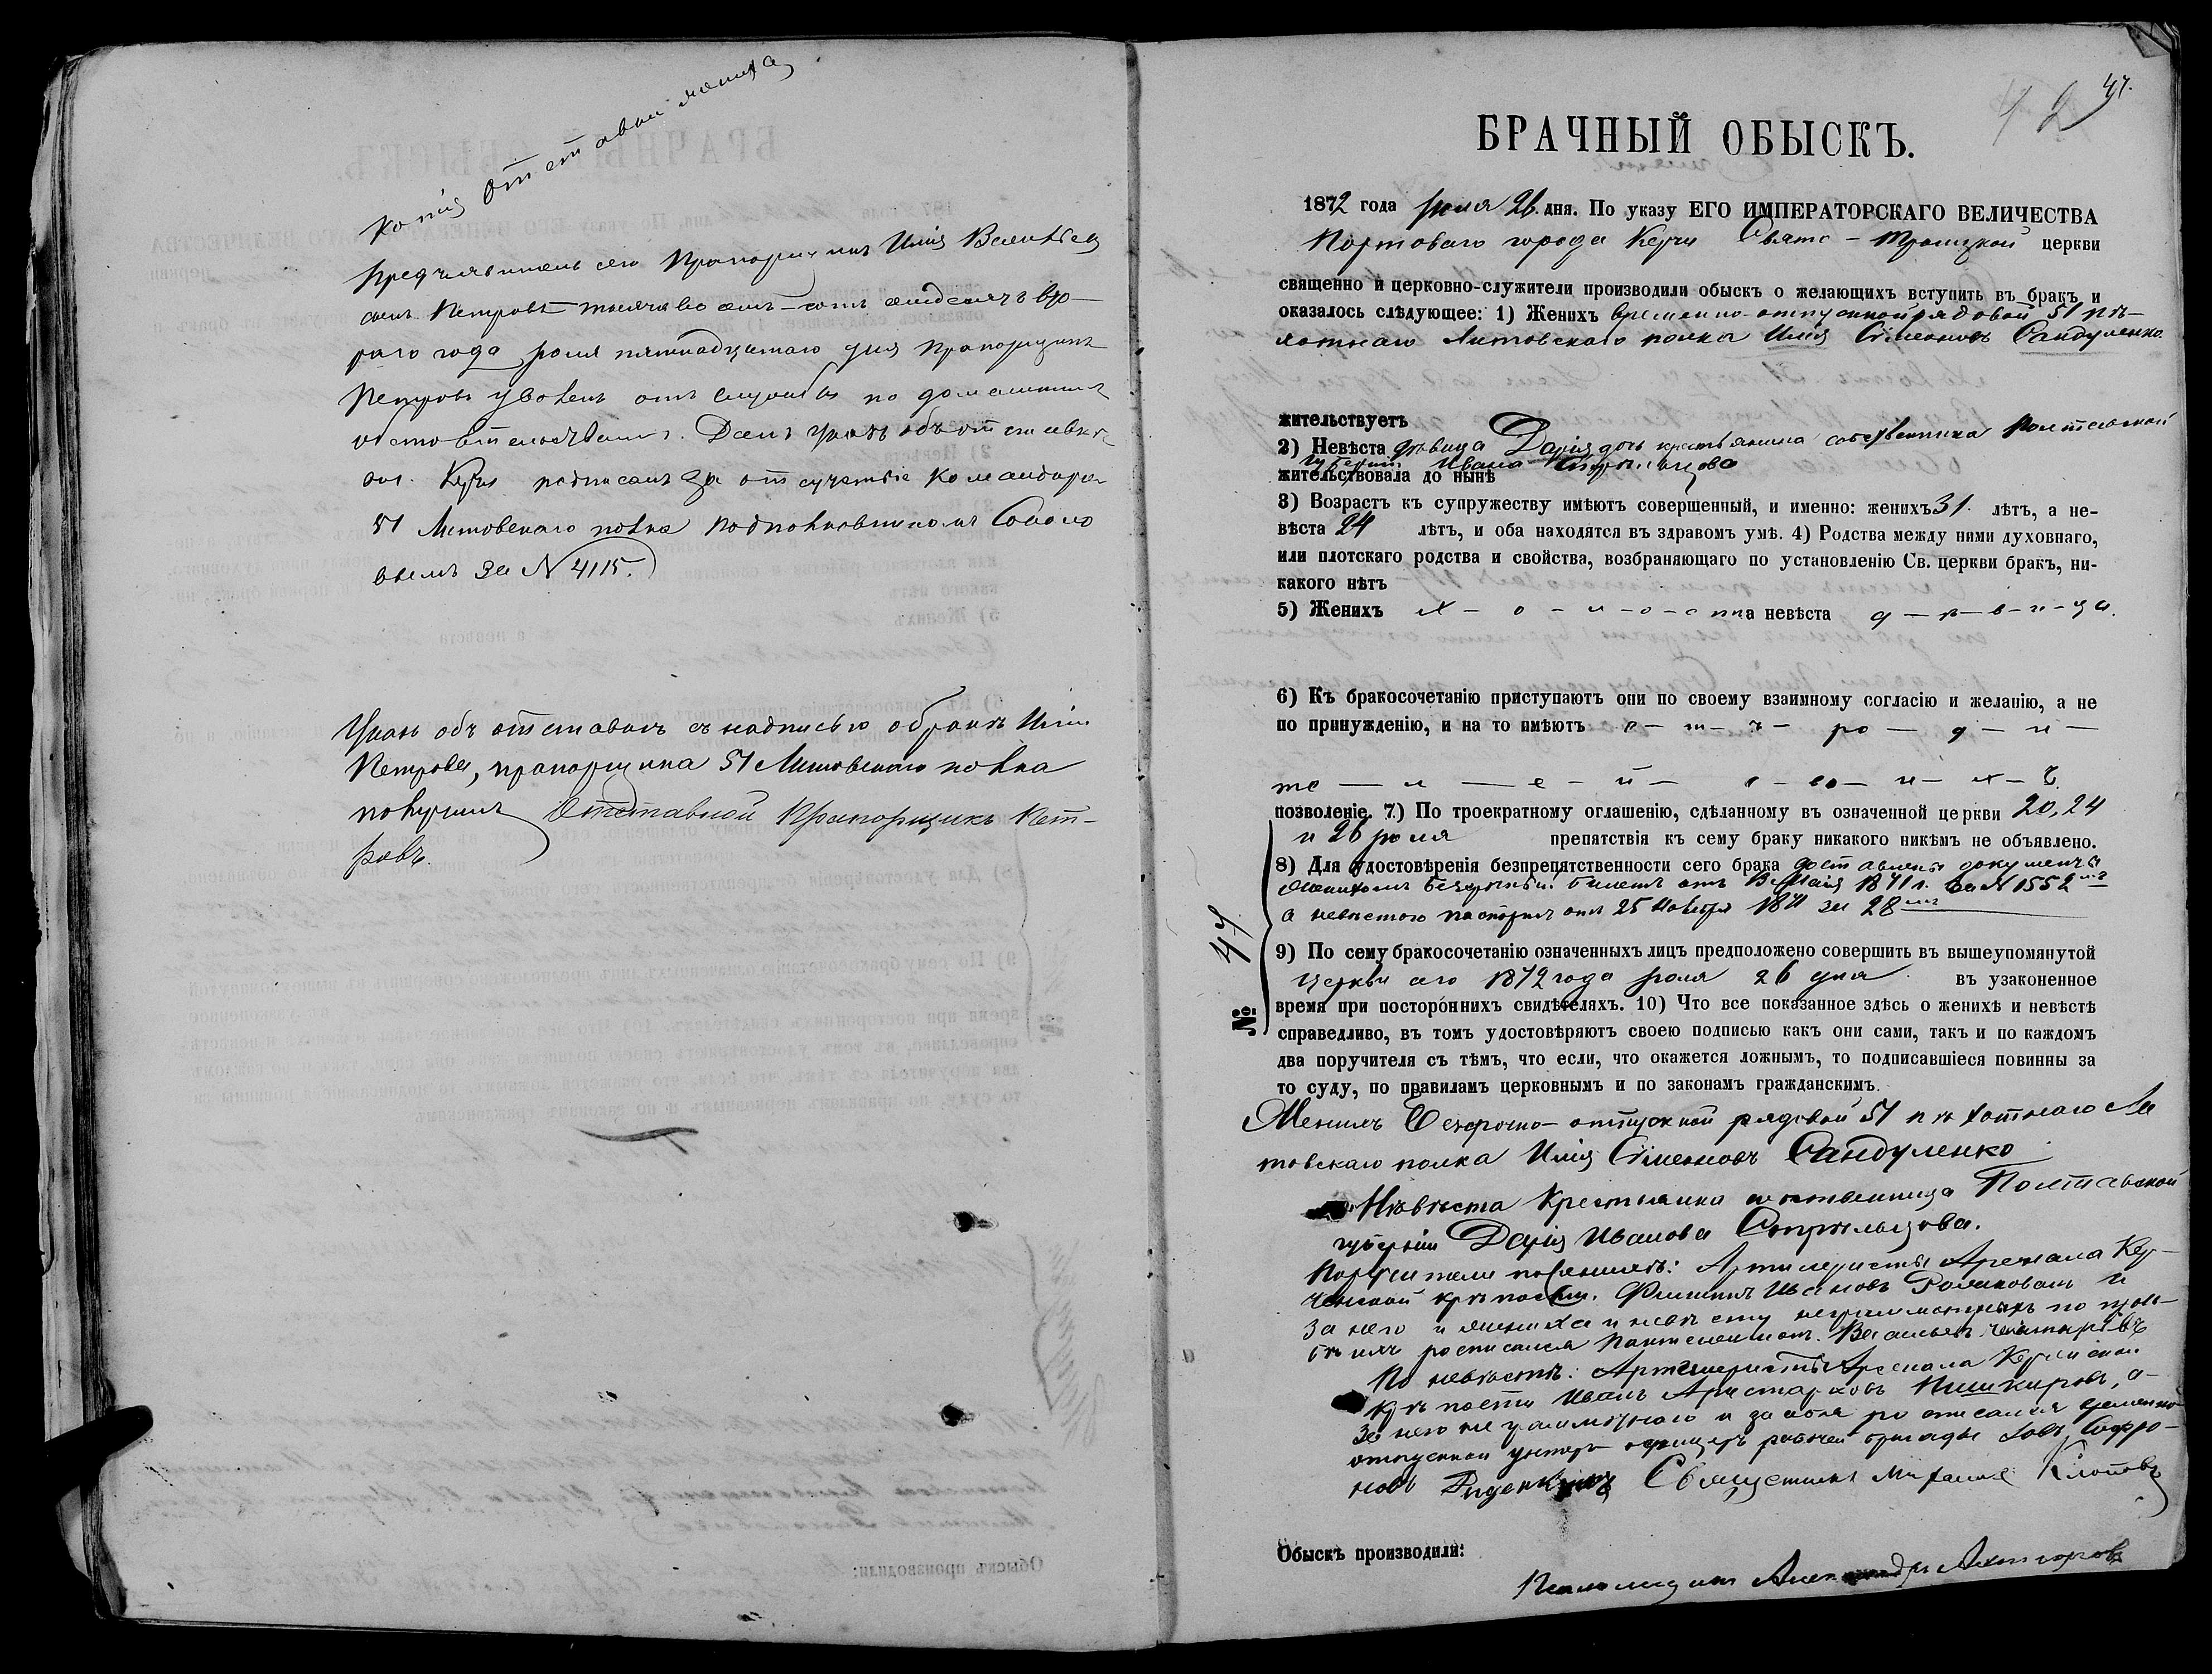 Копія отставки жениха
Предъявитель сего Прапорщикъ Илія Васильев
сынъ Петровъ тысяча восемь-сотъ семдесятъ вто-
раго года іюля пятнадцатаго дня Прапорщикъ
Петровъ уволенъ отъ службы по домашнимъ
обстоятельствамъ. Данъ указъ объ отставкѣ
Керчь подписалъ за отсутствіе Командира
51 Литовскаго полка Подполковникомъ Соколо
вымъ за № 4115.
Указъ объ отставкѣ съ надписью о бракѣ Иліи
Петрова, прапорщика 51 Литовскаго полка
получилъ Отставной Прапорщикъ Пет-
ровъ.
42 47.
БРАЧНЫЙ ОБЫСКЪ.
1872 года іюля 26 дня. По указу ЕГО ИМПЕРАТОРСКАГО ВЕЛИЧЕСТВА
Портоваго города Керчи Свято-Троицкой церкви
священно и церковно-служители производили обыскъ о желающихъ вступить въ бракъ и
оказалось слѣдующее: 1) Женихъ временно-отпускной рядовой 51 пѣ-
хотнаго Литовскаго полка Илія Сімеоновъ Сандуленко.
жительствуетъ
2) Невѣста дѣвица Дарія дочь крестьянина собственника Полтавской
губерніи Ивана Стрѣльцова
жительствовала до нынѣ
3) Возрастъ къ супружеству имѣютъ совершенный, и именно: женихъ 31 лѣтъ, а не-
вѣста 24 лѣтъ, и оба находятся въ здравомъ умѣ. 4) Родства между ними духовнаго,
или плотскаго родства и свойства, возбраняющаго по установленію Св. церкви бракъ, ни-
какого нѣтъ
5) Женихъ х – о – л – о – с тъ а невѣста д – ѣ – в – и – ца.
6) Къ бракосочетанію приступаютъ они по своему взаимному согласію и желанію, а не
по принужденію, и на то имѣютъ о – т – ъ – ро – д – и –
те – л – е – й – с – во – и – х – ъ
позволеніе. 7) По троекратному оглашенію, сдѣланному въ означенной церкви 20, 24
и 26 іюля препятствія къ сему браку никакого никѣмъ не объявлено.
8) Для удостовѣренія безпрепятственности сего брака доставлены документы
женихомъ безсрочный билетъ отъ Мая 1871 г. за № 1552
а невѣстою паспортъ отъ 25 Ноября 1871 за 28
9) По сему бракосочетанію означенныхъ лицъ предположено совершить въ вышеупомянутой
Церкви сего 1872 года іюля 26 дня въ узаконенное
время при постороннихъ свидѣтеляхъ. 10) Что все показанное здѣсь о женихѣ и невѣстѣ
№ 47
справедливо, въ томъ удостовѣряютъ своею подписью какъ они сами, такъ и по каждомъ
два поручителя съ тѣмъ, что если, что окажется ложнымъ, то подписавшіеся повинны за
то суду, по правиламъ церковнымъ и по законамъ гражданскимъ.
Женихъ Безсрочно-отпускной рядовой 51 пѣхотнаго Ли
товскаго полка Илія Сімеоновъ Сандуленко
Невѣста Крестьянка собственница Полтавской
губерніи Дарія Иванова Стрѣльцова.
Поручители по женихѣ: Артилеристы Арсенала Кер-
ченской крѣпости Филиппъ Ивановъ и
за него и жениха и невѣсту неграмотныхъ по прось-
бѣ ихъ росписался Васильевъ
По невѣстѣ: Артилеристъ Арсенала Керченской
крѣпости Иванъ Аристарховъ а
за него неграмотнаго и за себя росписался временно
отпускной унтеръ офицеръ рабочей бригады Софро-
новъ Священникъ Михаилъ
Обыскъ производили:
Псаломщикъ Александръ